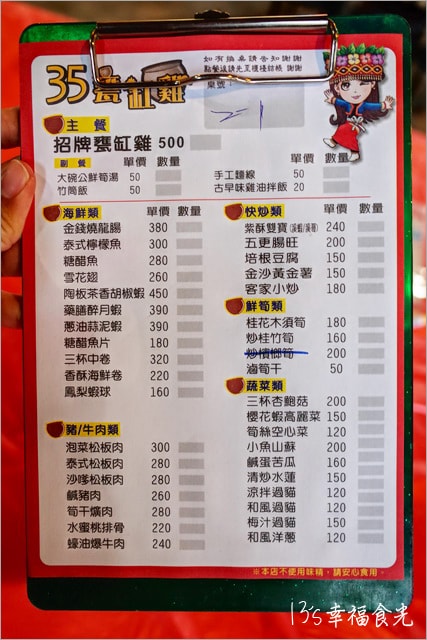 如有換桌請告知謝謝
點餐後請先至櫃檯結帳 謝謝
桌號:
35甕缸雞
主餐
招牌甕缸雞 500
副餐 單價 數量 單價 數量
大碗公鮮筍湯 50 手工麵線 50
竹筒飯 50 古早味雞油拌飯 20
海鮮類 單價 數量
金錢燒龍腸 380
泰式檸檬魚 300
糖醋魚 280
雪花翅 260
陶板茶香胡椒蝦 450
藥膳醉月蝦 390
蔥油蒜泥蝦 390
糖醋魚片 180
三杯中卷 320
香酥海鮮卷 220
鳳梨蝦球 160
豬/牛肉類
泡菜松板肉 300
泰式松板肉 280
沙嗲松板肉 280
鹹豬肉 260
筍干爌肉 280
水蜜桃排骨 220
蠔油爆牛肉 240
快炒類 單價 數量
紫酥雙寶(溪蝦/溪哥) 240
五更腸旺 200
培根豆腐 150
金沙黃金薯 150
客家小炒 180
鮮筍類
桂花木須筍 180
炒桂竹筍 160
炒檳榔筍 200
滷筍干 50
蔬菜類
三杯杏鮑菇 200
櫻花蝦高麗菜 150
筍絲空心菜 120
小魚山蘇 200
鹹蛋苦瓜 160
清炒水蓮 150
涼拌過貓 120
和風過貓 120
梅汁過貓 150
和風洋蔥 120
※本店不使用味精，請安心食用。
13's幸福食光